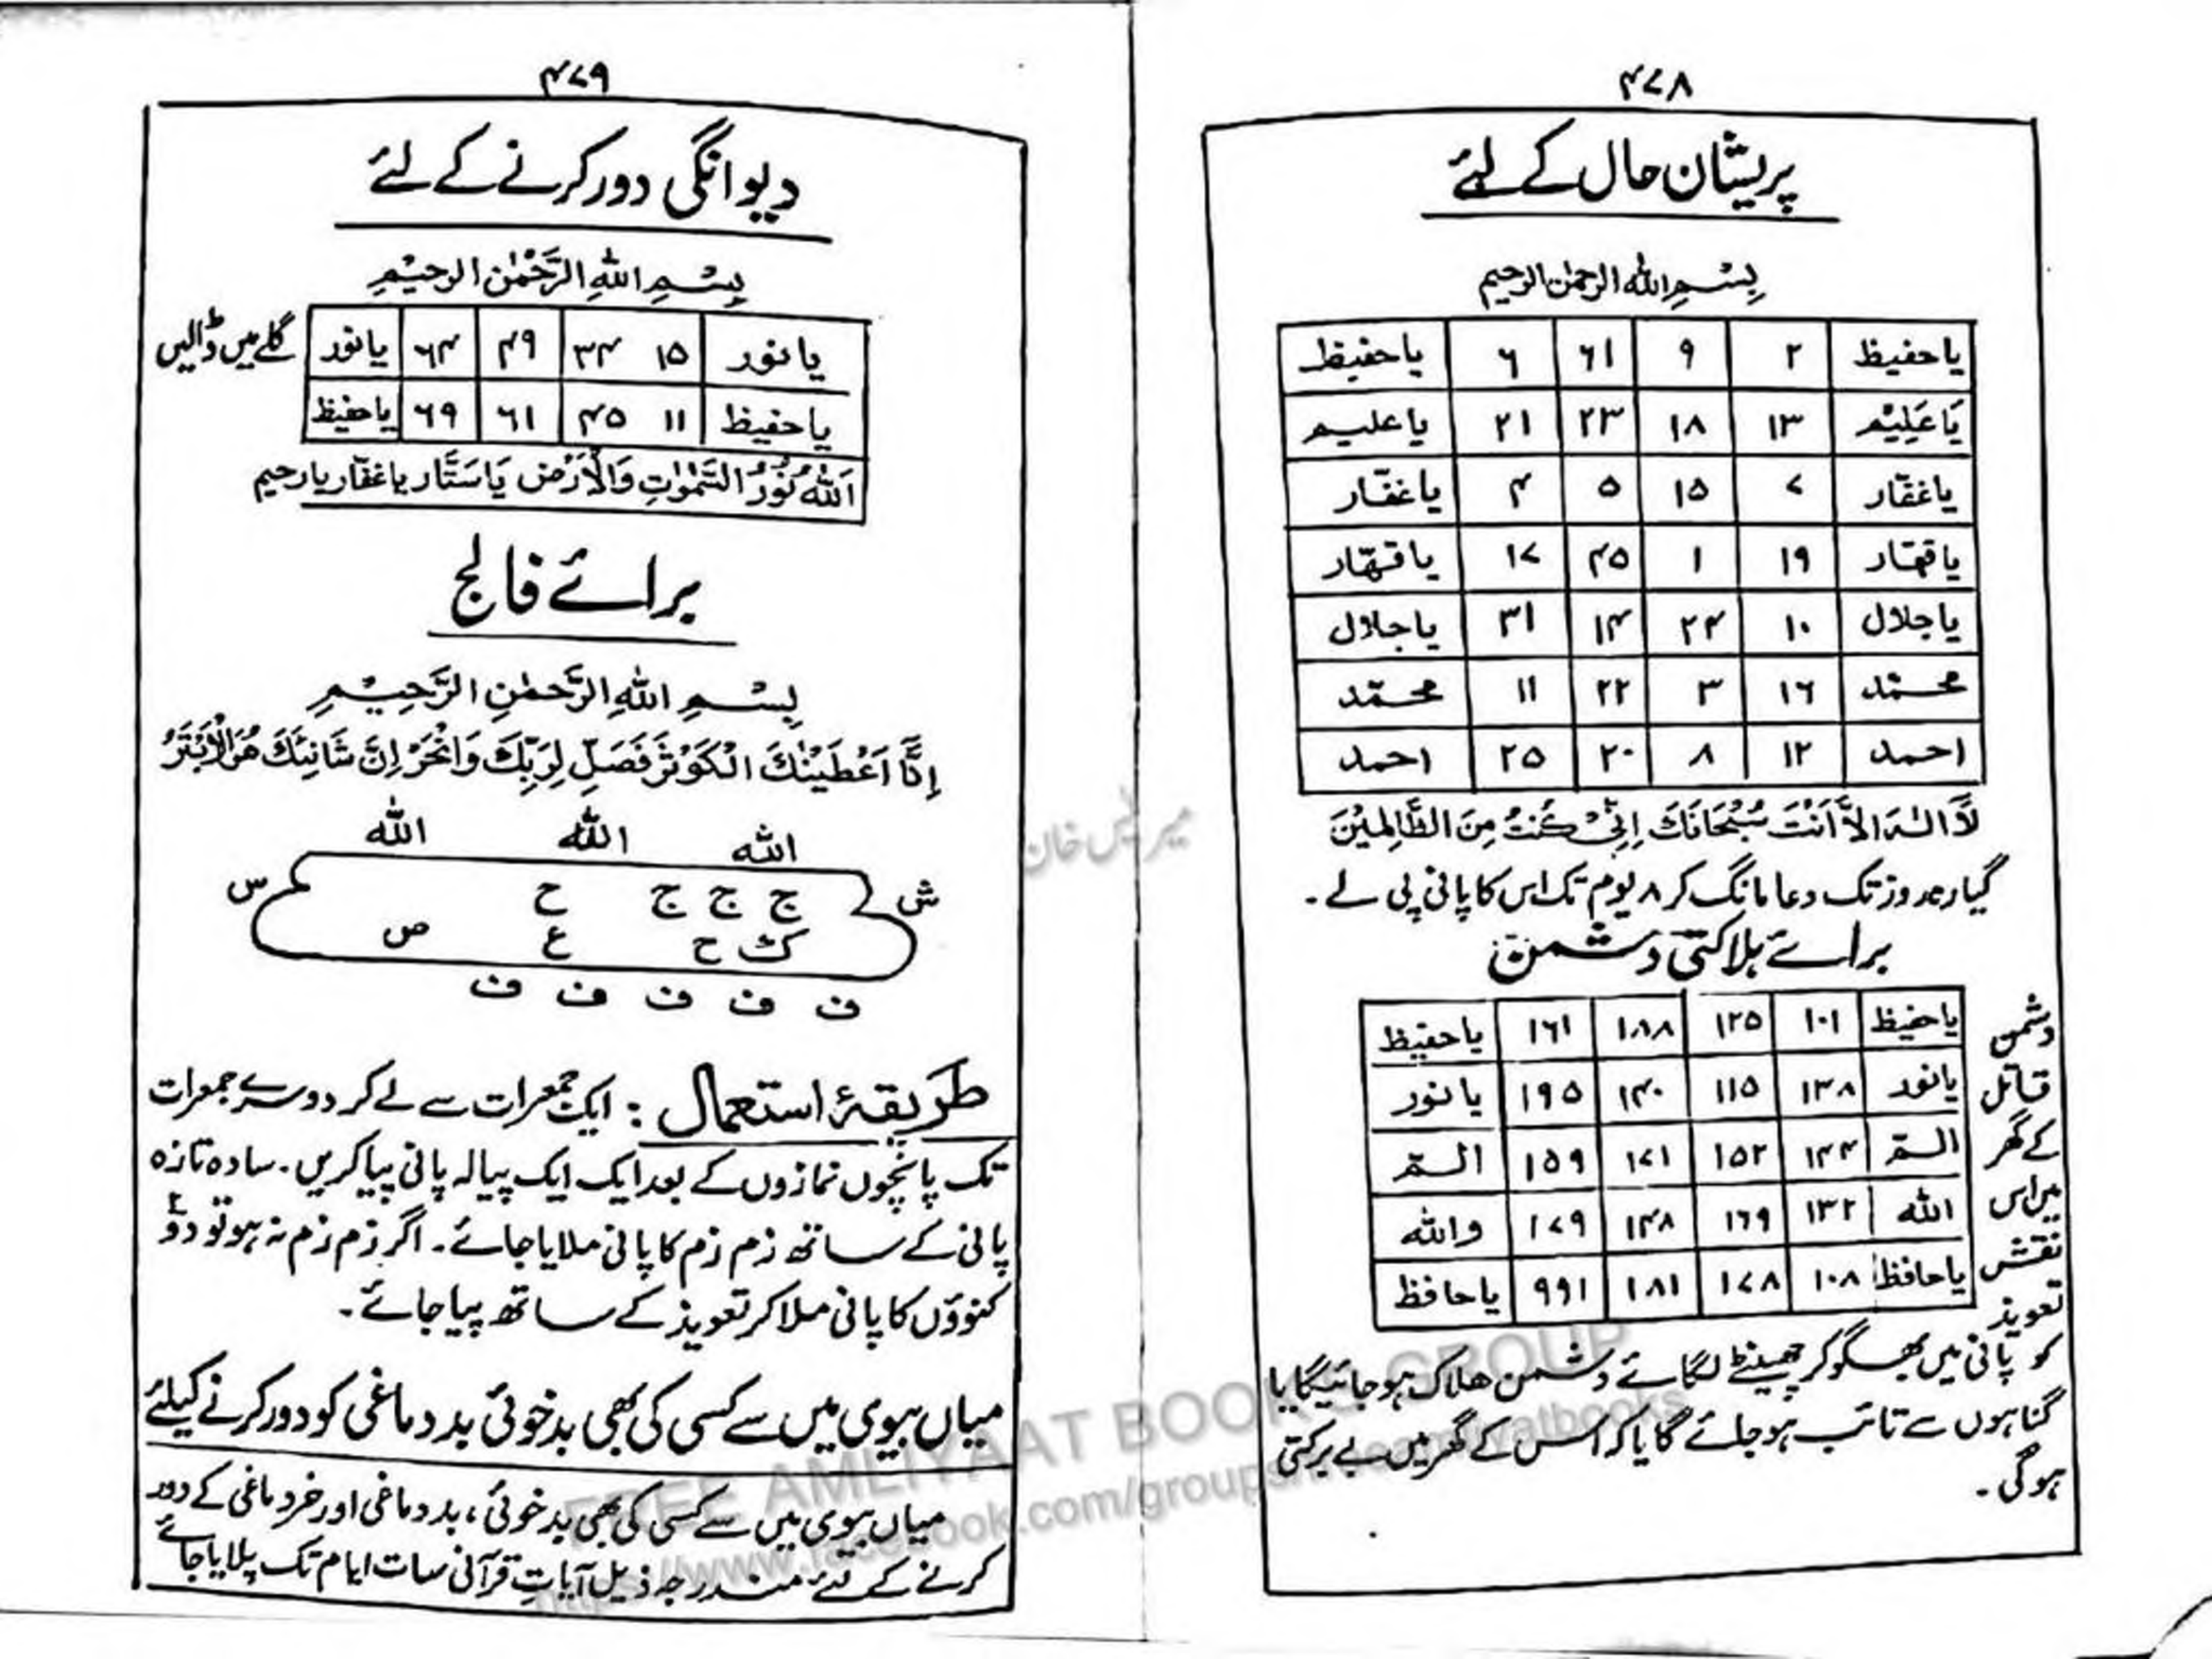 ۴۷۸
پریشان حال کے لئے
بِسْمِ اللہ الرحمٰن الرحیم
یا حفیظ ۲ ۹ ۶۱ ۶ یا حفیظ
یَا عَلِیْم ۱۳ ۱۸ ۲۳ ۲۱ یا علیم
یا غفّار ۷ ۱۵ ۵ ۴ یا غفّار
یا قہّار ۱۹ ۱ ۴۵ ۱۷ یا قہّار
یا جلال ۱۰ ۲۴ ۱۴ ۳۱ یا جلال
محمّد ۱۶ ۳ ۲۲ ۱۱ محمّد
احمد ۱۲ ۸ ۲۰ ۲۵ احمد
لَآ اِلٰہَ اِلَّا اَنْتَ سُبْحَانَكَ اِنِّیْ كُنْتُ مِنَ الظَّالِمِیْنَ
گیارہ روز تک دعا مانگ کر ۸ یوم تک اس کا پانی پی لے ۔
برائے ہلاکتی دشمن
یا حفیظ ۱۰۱ ۱۲۵ ۱۸۸ ۱۶۱ یا حفیظ
یا نور ۱۳۸ ۱۱۵ ۱۴۰ ۱۹۵ یا نور
الٓمّ ۱۴۴ ۱۵۲ ۱۷۱ ۱۵۹ الٓمّ
اللہ ۱۳۲ ۱۶۹ ۱۴۸ ۱۷۹ واللہ
یا حافظ ۱۰۸ ۱۷۸ ۱۸۱ ۹۹۱ یا حافظ
دشمن
قاتل
کے گھر
میں اس
نقش
تعویذ
کو پانی میں بھگو کر چھینٹے لگائے دشمن ھلاک ہو جائیگا یا
گناہوں سے تائب ہو جائے گا یا کہ اس کے گھر میں بے برکتی
ہوگی ۔
۴۷۹
دیوانگی دور کرنے کے لئے
بِسْمِ اللہِ الرَّحْمٰنِ الرحیْمِ
یا نور ۱۵ ۳۴ ۴۹ ۶۴ یا نور گلے میں ڈالیں
یا حفیظ ۱۱ ۴۵ ۶۱ ۶۹ یا حفیظ
اَللہُ نُوْرُ السَّمٰوٰتِ وَالْاَرْضِ یَا سَتَّار یا غفّار یا رحیم
برائے فالج
بِسْمِ اللہِ الرَّحمٰنِ الرَّحِیْمِ
اِنَّا اَعْطَیْنٰكَ الْكَوْثَرَ فَصَلِّ لِرَبِّكَ وَانْحَرْ اِنَّ شَانِئَكَ هُوَ الْاَبْتَرُ
اللہ اللہ اللہ
ش ج ج ج ح س
ک ح ع ص
ف ف ف ف ف
طَرِیقۂ استعمال : ایک جمعرات سے لے کر دوسرے جمعرات
تک پانچوں نمازوں کے بعد ایک ایک پیالہ پانی پیا کریں ۔ سادہ تازہ
پانی کے ساتھ زم زم کا پانی ملایا جائے ۔ اگر زم زم نہ ہو تو دو
کنوؤں کا پانی ملا کر تعویذ کے ساتھ پیا جائے ۔
میاں بیوی میں سے کسی کی بھی بدخوئی بد دماغی کو دور کرنے کیلئے
میاں بیوی میں سے کسی کی بھی بدخوئی ، بد دماغی اور خردماغی کے دور
کرنے کے لئے مندرجہ ذیل آیاتِ قرآنی سات ایام تک پلایا جائے
FREE AMLIYAAT BOOKS GROUP